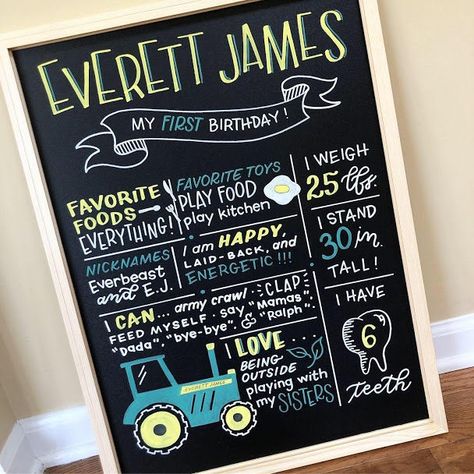 EVERETT JAMES
MY FIRST BIRTHDAY!
FAVORITE
FOODS
EVERYTHING!
FAVORITE TOYS
PLAY FOOD
play kitchen
I WEIGH
25 lbs.
NICKNAMES
Everbeast
and E.J.
I am HAPPY,
LAID-BACK, and
ENERGETIC!!!
I STAND
30 in.
TALL!
I CAN... army crawl.. CLAP
FEED MYSELF.. say "Mamas",
"Dada", "bye-bye". & "Ralph".
I HAVE
6
teeth
I LOVE...
BEING
OUTSIDE
playing with
my SISTERS
EVERETT JAMES